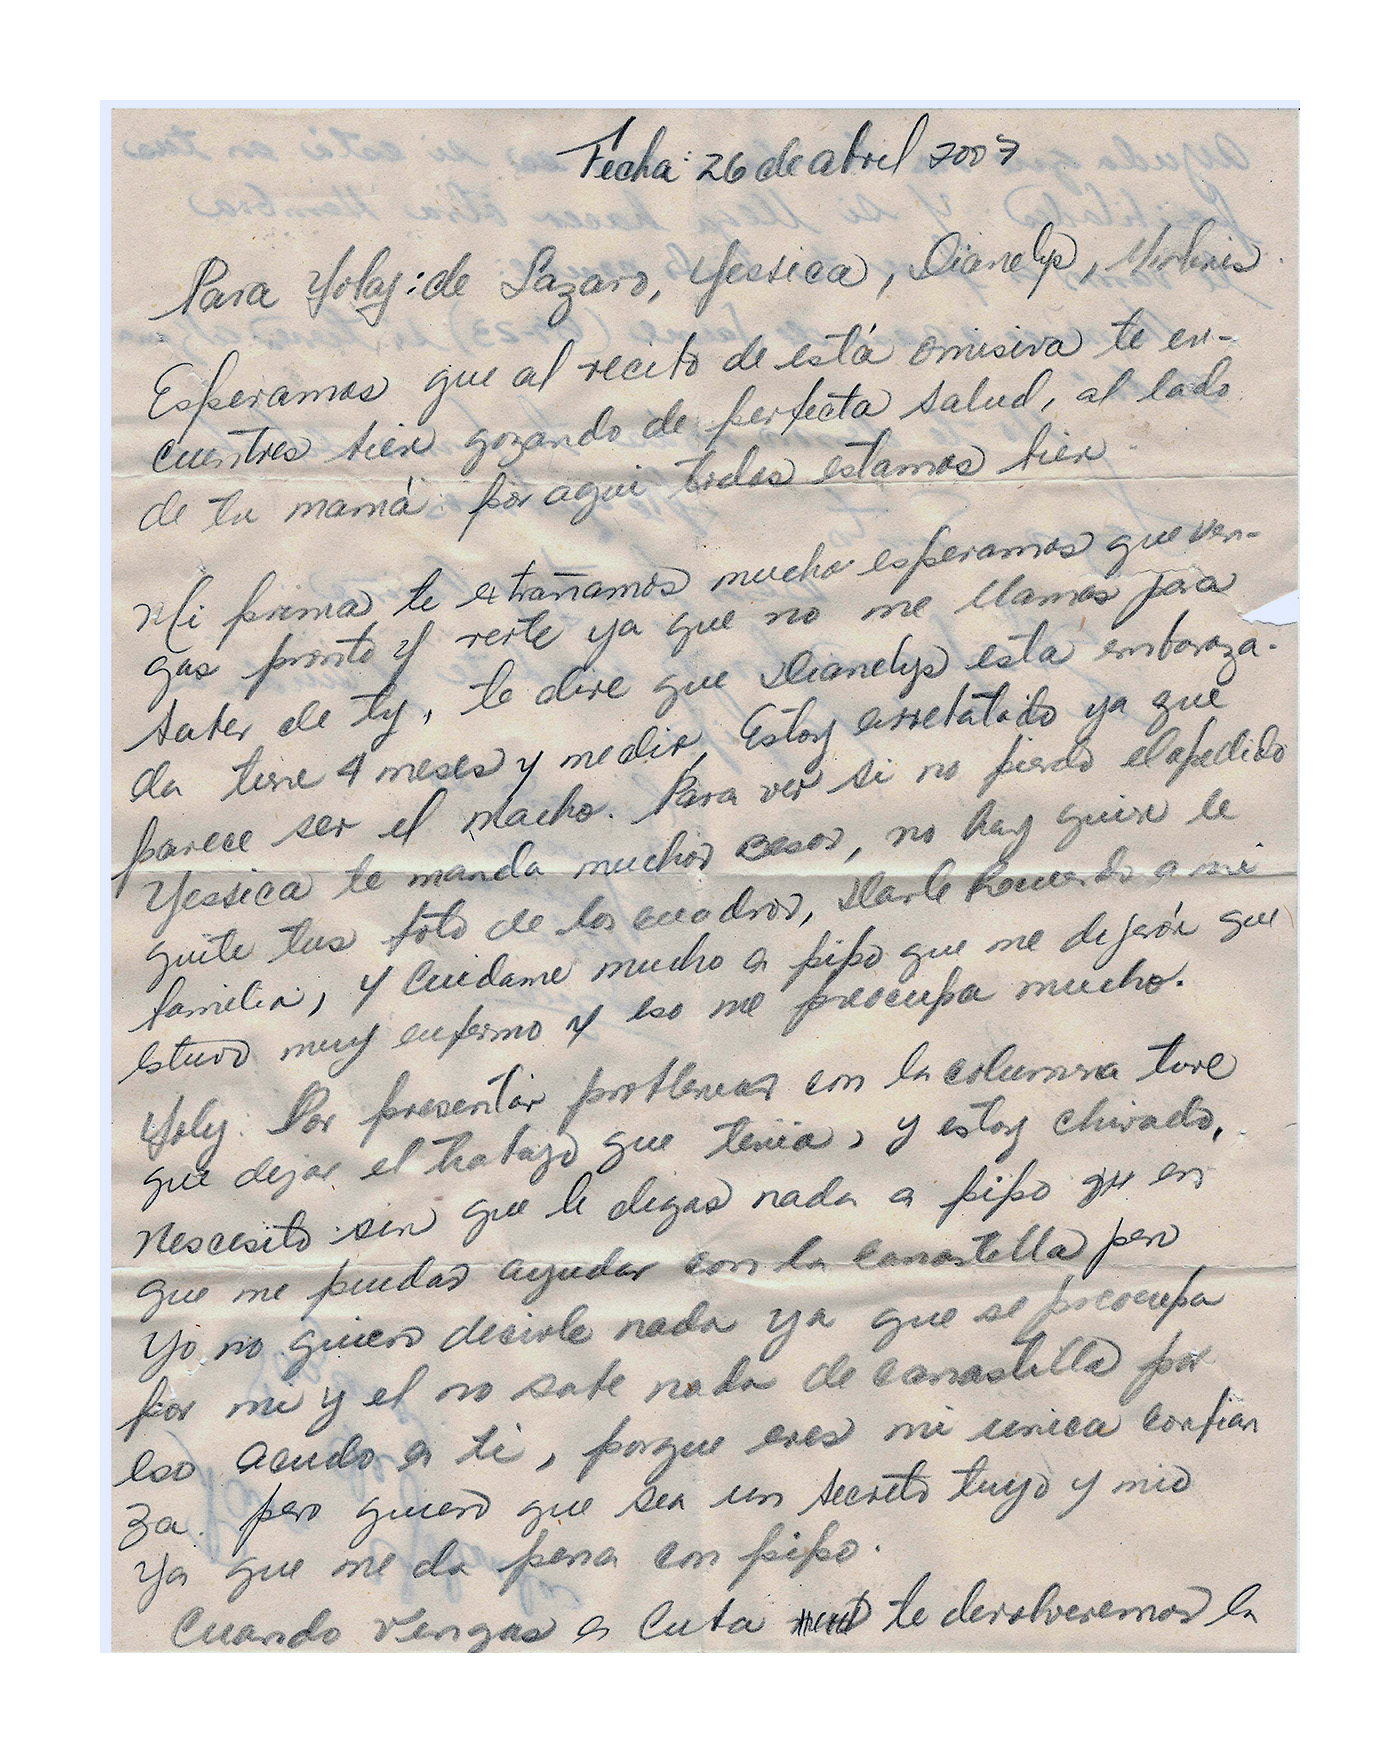 Fecha: 26 de abril 2007
Para Yoly: de Lazaro, Yessica, Dianelys, Mirleris.
Esperamos que al recibo de está omisiva te en-
cuentres bien gozando de perfecta salud, al lado
de tu mamá. por aqui todos estamos bien.
Mi prima te extrañamos mucho esperamos que ven-
gas pronto y verte ya que no me llamas para
saber de ty, te dire que Dianelys esta embaraza-
da tiene 4 meses y medio, Estoy arrebatado ya que
parece ser el macho. Para ver si no pierdo el apedido
Yessica te manda muchos besos, no hay quien le
quite tus foto de los cuadros, Darle Recuerdo a mi
familia, y Cuidame mucho a pipo que me dejarón que
estuvo muy enfermo y eso me preocupa mucho.
Yoly. Por presentar problemas con la columna tuve
que dejar el trabajo que tenia, y estoy chivado,
nescesito sin que le digas nada a pipo en
que me puedas ayudar con la canastilla pero
Yo no quiero decirle nada ya que se preocupa
por mi y el no sabe nada de canastilla por
eso acudo a ti, porque eres mi unica confian
za. pero quiero que sea un secreto tuyo y mio
Ya que me da pena con pipo.
Cuando vengas a Cuba te devolveremos la